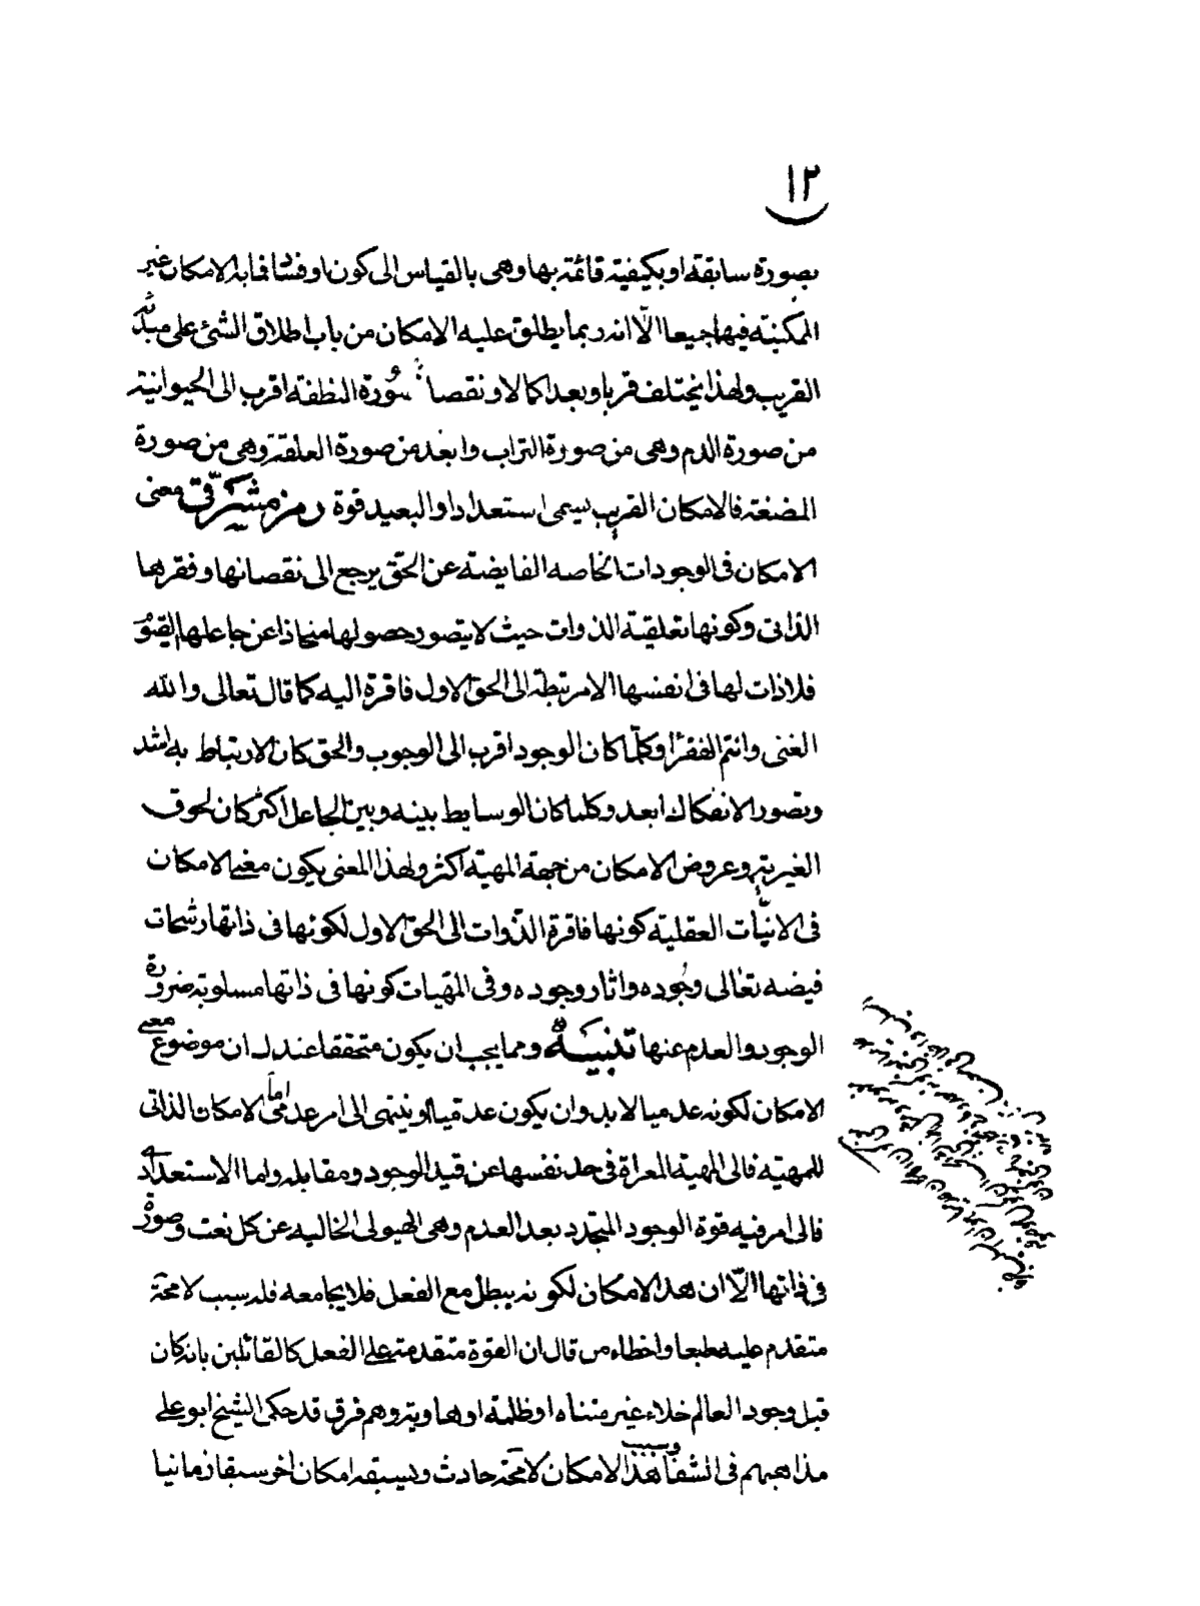 ١٢
بصورة سابقة او بكيفية قائمة بها وهى بالقياس الى كون او فساد فما به الامكان غير
المكنته فيها جميعا الّا انه ربما يطلق عليه الامكان من باب اطلاق الشئ على مبدئه
القريب ولهذا يختلف قربا وبعدا كمالا ونقصا صورة النطفة اقرب الى الحيوانية
من صورة الدم وهى من صورة التراب وابعد من صورة العلقة وهى من صورة
المضغة فالامكان القريب يسمى استعدادا والبعيد قوة رمز مشرقى معنى
الامكان فى الوجودات الخاصه الفايضة عن الحق يرجع الى نقصانها وفقرها
الذاتى وكونها تعلقية الذوات حيث لا يتصور حصولها منحاذا عن جاعلها القيوم
فلا ذات لها فى انفسها الا مرتبطة الى الحق الاول فاقرة اليه كما قال تعالى والله
الغنى وانتم الفقرٓا وكلّما كان الوجود اقرب الى الوجوب والحق كان الارتباط به اشد
وتصور الانفكاك ابعد وكلما كان الوسايط بينه وبين الجاعل اكثر كان لحوق
الغيرية وعروض الامكان من جهة المهية اكثر ولهذا المعنى يكون معنى الامكان
فى الانيّات العقلية كونها فاقرة الذّوات الى الحق الاول لكونها فى ذاتها رشحات
فيضه تعالى وجوده واثار وجوده وفى المهيات كونها فى ذاتها مسلوبة ضرورة
الوجود والعدم عنها تنبيه ومما يجب ان يكون متحققا عندك ان موضوع معنى
الامكان لكونه عدميا لا بد وان يكون عدميا او ينتهى الى امر عدمى اما الامكان الذاتى
للمهية فالى المهية المعراة فى حد نفسها عن قيد الوجود ومقابله واما الاستعدادى
فالى امر فيه قوة الوجود المتجدد بعد العدم وهى الهيولى الخاليه عن كل نعت وصورة
فى ذاتها الّا ان هذا الامكان لكونه يبطل مع الفعل فلا يجامعه فله سبب لا محة
متقدم عليه طبعا واخطاء من قال ان القوة متقدمة على الفعل كالقائلين بانه كان
قبل وجود العالم خلاء غير متناه او ظلمة او هاوية وهم فرق قد حكى الشيخ ابو على
مذاهبهم فى الشفا وسبب هذا الامكان لا محة حادث ويسبقه امكان اخر سبقا زمانيا